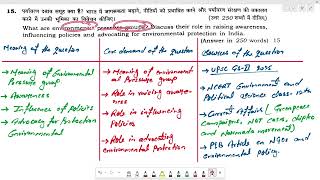 15. पर्यावरण दबाव समूह क्या हैं? भारत में जागरूकता बढ़ाने, नीतियों को प्रभावित करने और पर्यावरण संरक्षण की वकालत
करने में उनकी भूमिका का विवेचन कीजिए। (उत्तर 250 शब्दों में दीजिए)
What are environmental pressure groups? Discuss their role in raising awareness,
influencing policies and advocating for environmental protection in India.
(Answer in 250 words) 15
Meaning of the Question
Core demand of the question
Sources of the question
→ Meaning of Environmental Pressure Group
→ Awareness
→ Influence of Policies
→ Advocacy for Protection Environmental
→ Meaning of environmental Pressure group
→ Role in raising awareness
→ Role in influencing Policies
→ Role in advocating environmental Protection
→ UPSC GS-II
→ NCERT Government and Political science class-12th
→ Current Affairs (Greenpeace campaigns, NGT cases, chipko and Narmada movement)
→ PIB Article on NGOs and environmental Policy